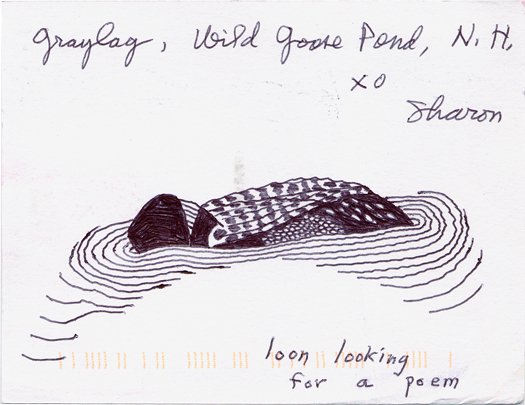 Graylag, Wild Goose Pond, N.H.
XO
Sharon
loon looking
for a poem